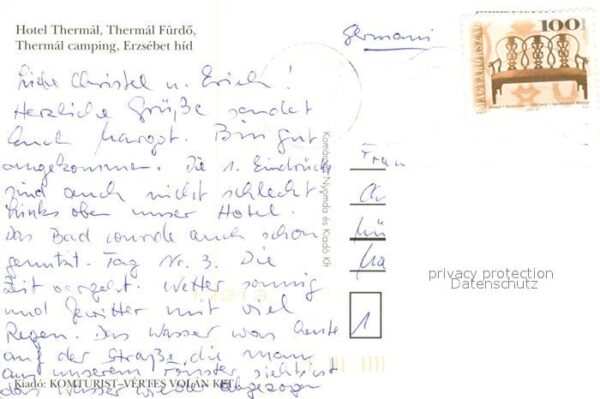 Hotel Thermál, Thermál Fürdő,
Thermál camping, Erzsébet híd
Germani
100
MAGYARORSZÁG
Liebe Christel u. Erich!
Herzliche Grüße sendet
Euch Margot. Bin gut
angekommen. Die 1. Eindrücke
sind auch nicht schlecht
Links oben unser Hotel.
Das Bad wurde auch schon
genutzt. Tag Nr. 3. Die
Zeit vergeht. Wetter sonnig
und Gewitter mit viel
Regen. Das Wasser war heute
auf der Straße, die man
aus unserem Fenster sieht, ist
das Wasser wieder abgezogen
Kiadó: KOMTURIST–VÉRTES VOLÁN KFT.
Nyomda és Kiadó Kft
Frau
1
privacy protection
Datenschutz